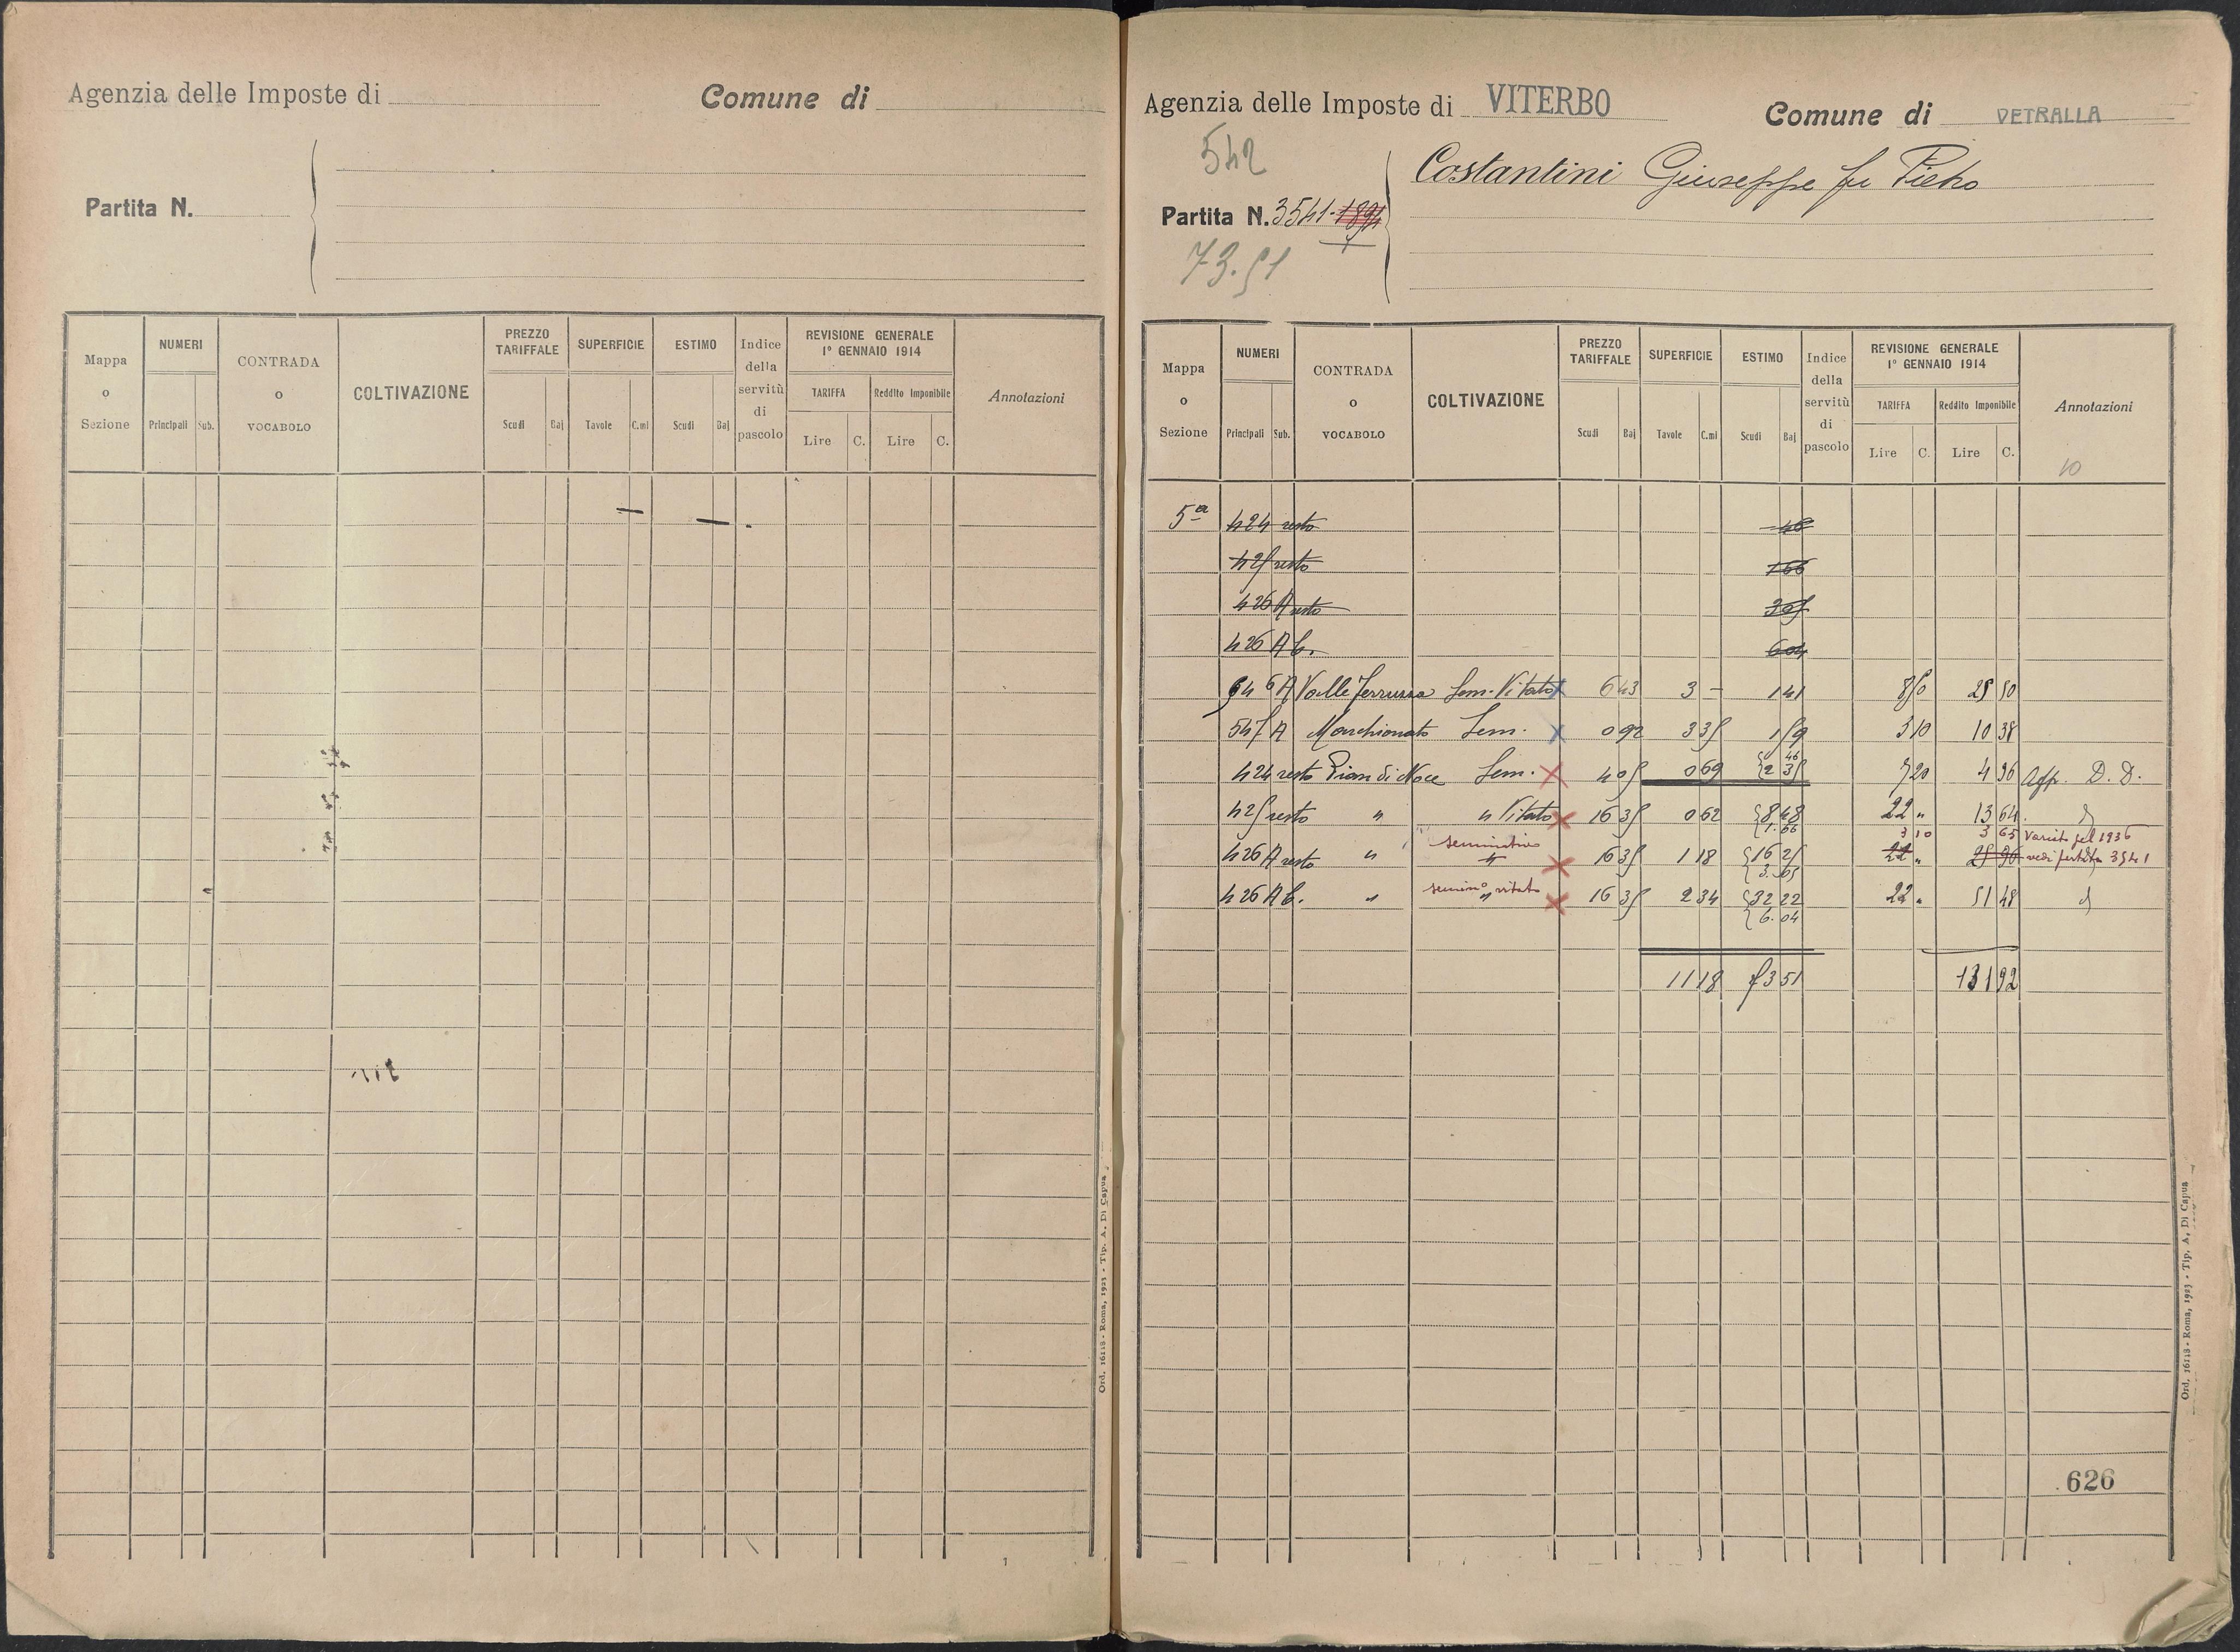 Agenzia delle Imposte di
Comune di
Partita N.
Mappa o Sezione
NUMERI
Principali Sub.
CONTRADA o VOCABOLO
COLTIVAZIONE
PREZZO TARIFFALE
Scudi Baj
SUPERFICIE
Tavole C.mi
ESTIMO
Scudi Baj
Indice della servitù di pascolo
REVISIONE GENERALE
1° GENNAIO 1914
TARIFFA
Lire C.
Reddito Imponibile
Lire C.
Annotazioni
Ord. 16118 - Roma, 1923 - Tip. A. Di Capua
1
Agenzia delle Imposte di VITERBO
Comune di VETRALLA
542
Costantini Giuseppe fu Pietro
Partita N. 3541 1894
73.51
Mappa o Sezione
NUMERI
Principali Sub.
CONTRADA o VOCABOLO
COLTIVAZIONE
PREZZO TARIFFALE
Scudi Baj
SUPERFICIE
Tavole C.mi
ESTIMO
Scudi Baj
Indice della servitù di pascolo
REVISIONE GENERALE
1° GENNAIO 1914
TARIFFA
Lire C.
Reddito Imponibile
Lire C.
Annotazioni
10
5a 424 resto 46
425 resto 166
426 A resto 305
426 A b. 604
546 A Valle Sem. Vitato 6 43 3 – 1 41 8 50 25 50
547 A Marchionato Sem. 0 92 3 35 1 59 3 10 10 38
424 resto Pian di Noce Sem. 4 05 0 69 46 2 35 7 20 4 96 App. D. D.
425 resto " " Vitato 16 35 0 62 8 48 1.66 22 " 13 64
seminativo 3 10 3 65 Variato pel 1936
426 A resto " " 16 35 1 18 16 25 3.05 22 " 25 96 vedi partita 3541
semin° vitato
426 A b. " " 16 35 2 34 32 22 6.04 22 " 51 48
11 18 13192
626
Ord. 16118 - Roma, 1923 - Tip. A. Di Capua